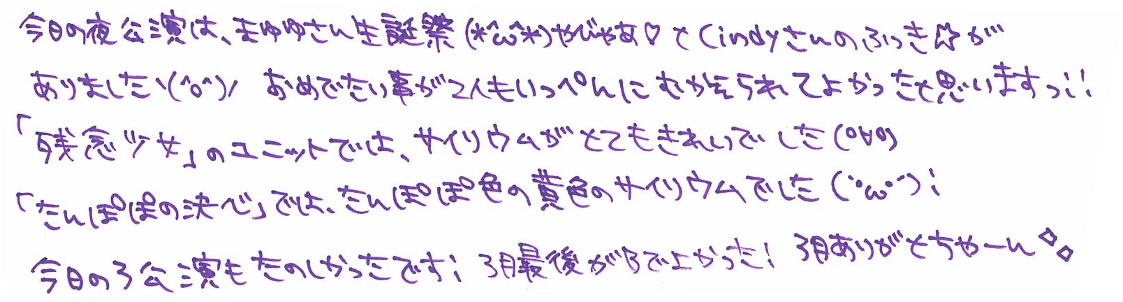 今日の夜公演は、まゆゆさん生誕祭(*^ω^*)やじゃあ♡とCindyさんのふっき☆が
ありました\(^o^)/ おめでたい事が2人もいっぺんにむかえられてよかったと思いますっ!!
「残念少女」のユニットでは、サイリウムがとてもきれいでした(°∀°)
「たんぽぽの決心」では、たんぽぽ色の黄色のサイリウムでした(´°ω°`)!
今日の3公演もたのしかったです! 3月最後がBでよかった! 3月ありがとちゃーん◇◇